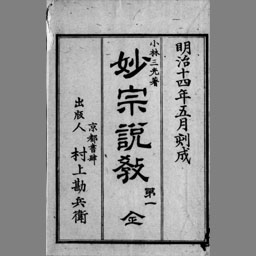 明治十四年五月刻成
小林三光著
妙宗説教 第一 全
京都書肆
出版人 村上勘兵衛